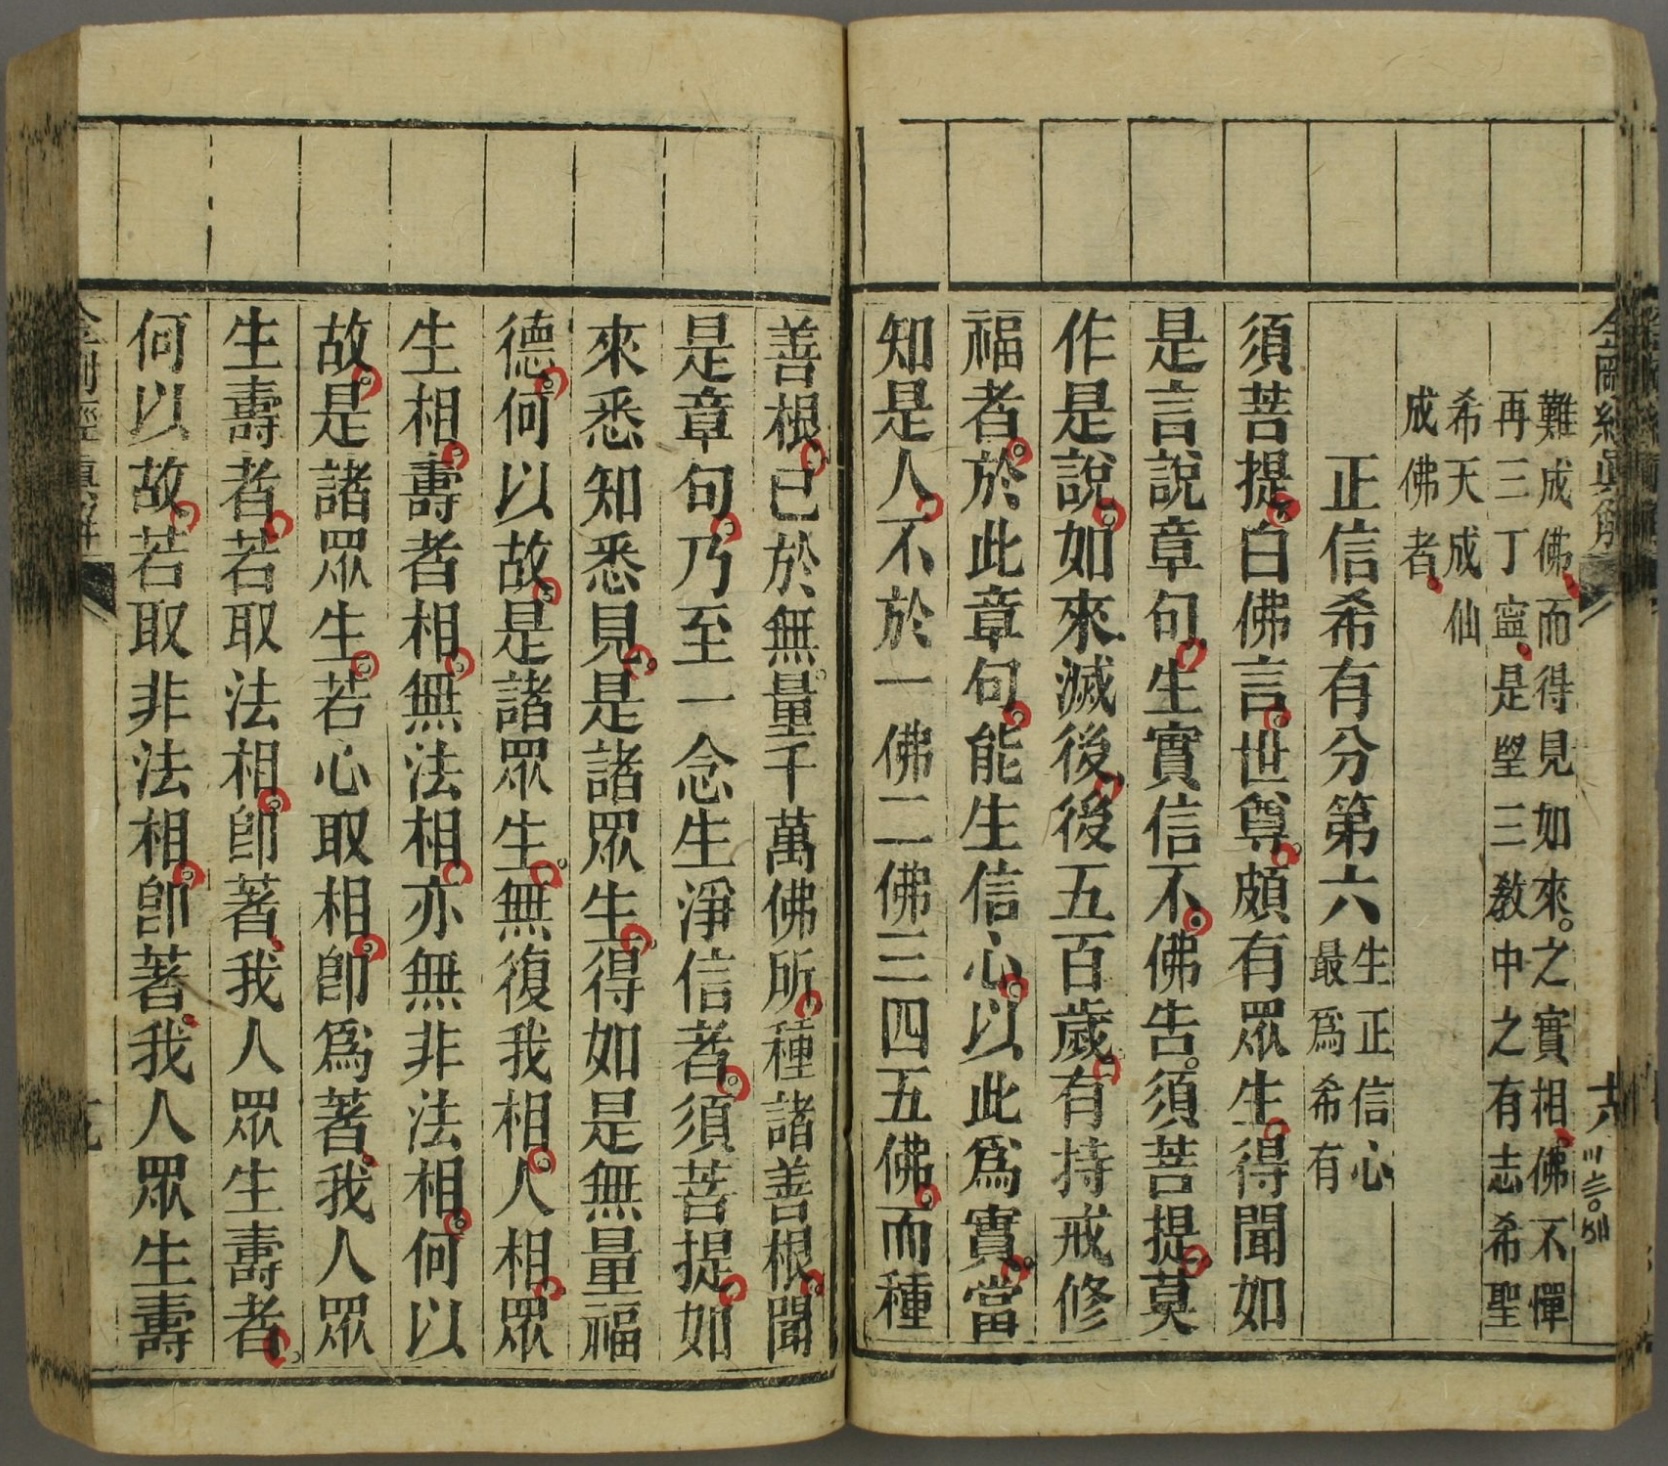 金剛經眞解
難成佛而得見如來之實相佛不憚
再三丁寧是望三教中之有志希聖
希天成仙
成佛者
正信希有分第六生正信心
最爲希有
須菩提白佛言世尊頗有眾生得聞如
是言說章句生實信不佛告須菩提莫
作是說如來滅後後五百歲有持戒修
福者於此章句能生信心以此爲實當
知是人不於一佛二佛三四五佛而種
善根已於無量千萬佛所種諸善根聞
是章句乃至一念生淨信者須菩提如
來悉知悉見是諸眾生得如是無量福
德何以故是諸眾生無復我相人相眾
生相壽者相無法相亦無非法相何以
故是諸眾生若心取相卽爲著我人眾
生壽者若取法相卽著我人眾生壽者
何以故若取非法相卽著我人眾生壽